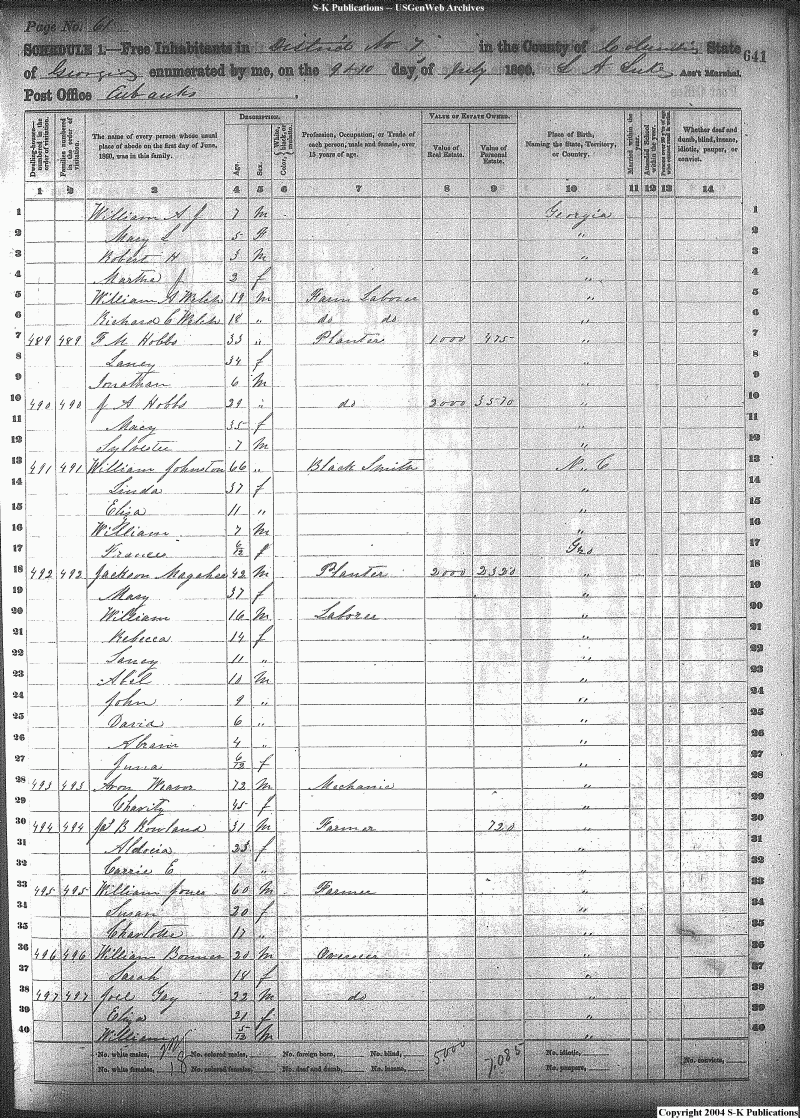 S-K Publications -- USGenWeb Archives
Page No. 61
SCHEDULE 1.—Free Inhabitants in District No 7 in the County of Columbia State 641
of Georgia enumerated by me, on the 9 & 10 day of July 1860. Ass't Marshal.
Post Office Eubanks
Dwelling-houses numbered in the order of visitation. Families numbered in the order of visitation. The name of every person whose usual place of abode on the first day of June, 1860, was in this family. DESCRIPTION. Age Sex. Color, White, black, or mulatto. Profession, Occupation, or Trade of each person, male and female, over 15 years of age. VALUE OF ESTATE OWNED. Value of Real Estate. Value of Personal Estate. Place of Birth, Naming the State, Territory, or Country. Married within the year. Attended School within the year. Whether deaf and dumb, blind, insane, idiotic, pauper, or convict.
1 2 3 4 5 6 7 8 9 10 11 12 13 14
1 William A J 7 M Georgia 1
2 Mary L 5 F " 2
3 Robert H 3 M " 3
4 Martha J 2 f " 4
5 William A Welch 19 M Farm Laborer " 5
6 Richard C Welch 18 " do do " 6
7 489 489 F M Hobbs 33 " Planter 1000 475 " 7
8 Laney 34 f " 8
9 Jonathan 6 M " 9
10 490 490 J A Hobbs 29 " do 2000 3570 " 10
11 Macy 35 f " 11
12 Sylvester 7 M " 12
13 491 491 William Johnston 66 " Black Smith N. C 13
14 Linda 37 f " 14
15 Eliza 11 " " 15
16 William 7 M " 16
17 Frances 6/12 f Geo 17
18 492 492 Jackson Magahee 42 M Planter 2000 2320 " 18
19 Mary 37 f " 19
20 William 16 M Laborer " 20
21 Rebecca 14 f " 21
22 Laney 11 " " 22
23 Abel 10 M " 23
24 John 9 " " 24
25 David 6 " " 25
26 Abram 4 " " 26
27 Juna 6/12 f " 27
28 493 493 Aron Weavor 72 M Mechanic " 28
29 Charity 45 f " 29
30 494 494 Jas B Rowland 31 M Farmer 720 " 30
31 Aldocia 23 f " 31
32 Carrie E 1 " " 32
33 495 495 William Jones 60 M Farmer " 33
34 Susan 20 f " 34
35 Charlotte 17 " " 35
36 496 496 William Bonner 20 M Overseer " 36
37 Sarah 18 f " 37
38 497 497 Joel Gay 22 M do " 38
39 Eliza 21 f " 39
40 William 5/12 M " 40
No. white males, No. colored males, No. foreign born, No. blind, 5.000 7,085 No. idiotic, No. convicts,
No. white females, 18 No. colored females, No. deaf and dumb, No. insane, No. paupers,
Copyright 2004 S-K Publications